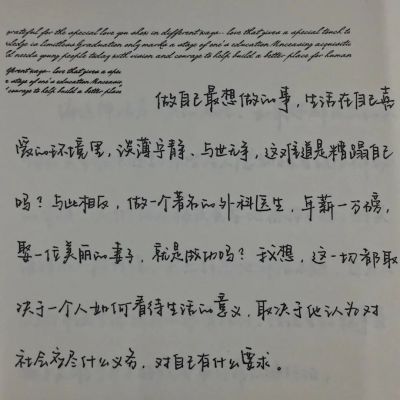 grateful for the special love you show in different ways - love that gives a special touch to
limitless Graduation only marks a stage of one's education Unceasing acquisitio
needs young people today with vision and courage to help build a better place for human
ways - love that gives a spec
a stage of one's education Unceasing
courage to help build a better place
做自己最想做的事，生活在自己喜
爱的环境里，淡薄宁静、与世无争，这难道是糟蹋自己
吗？与此相反，做一个著名的外科医生，年薪一万磅，
娶一位美丽的妻子，就是成功吗？我想，这一切都取
决于一个人如何看待生活的意义，取决于他认为对
社会应尽什么义务，对自己有什么要求。